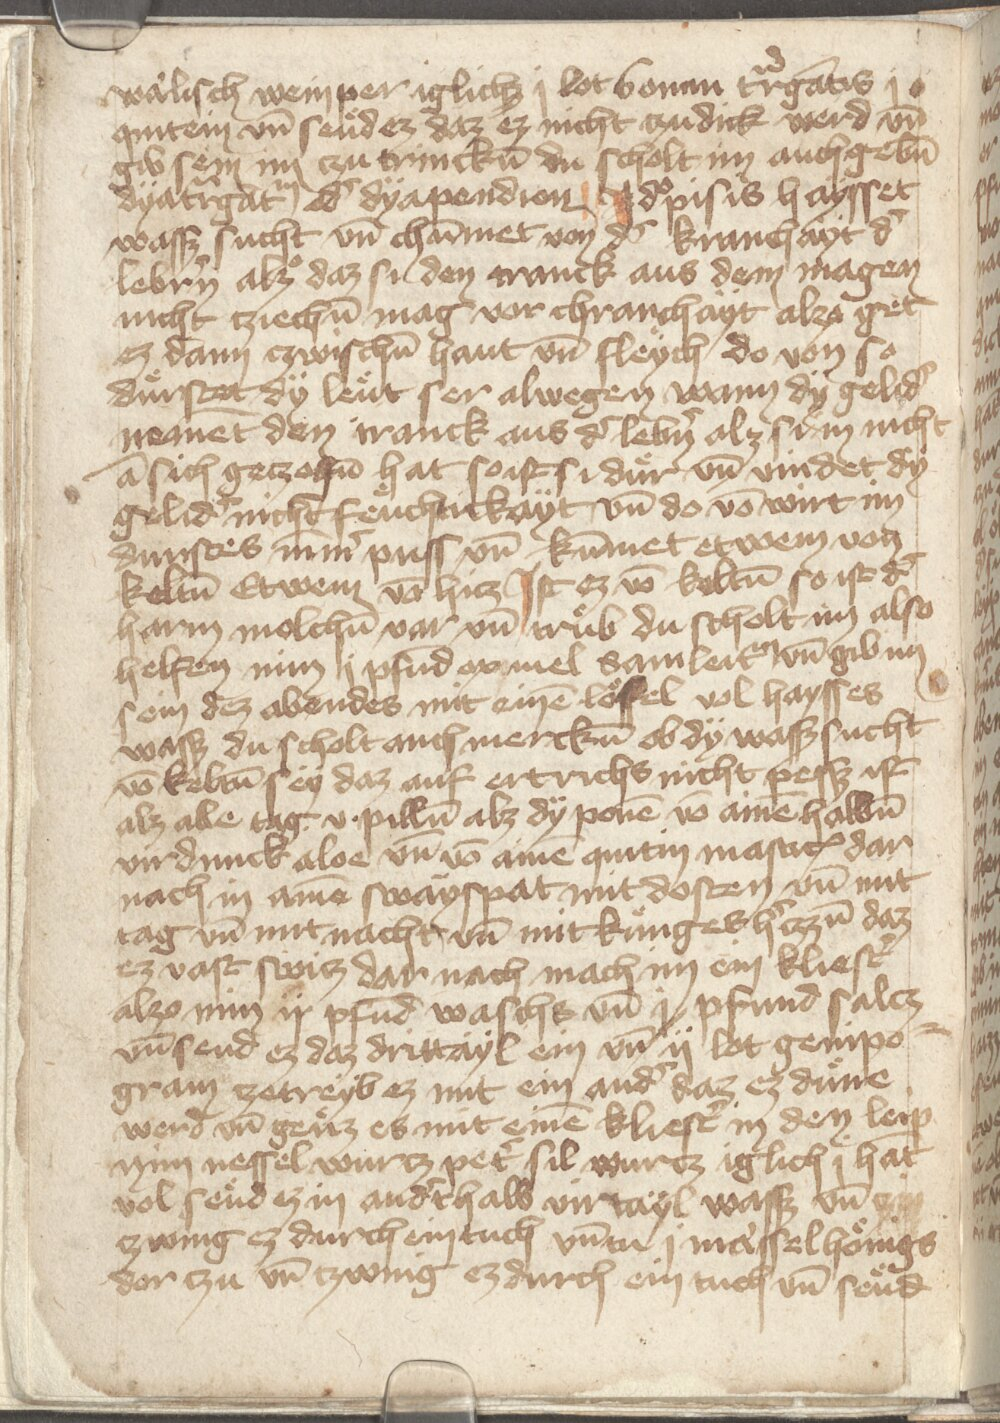 wälisch weinper iglichz j lot bonum trgatis j
quitein vn̄ seud ez daz ez nicht czu dick werd vn̄
gib sein im czu trinckn̄ du scholt im auch gebn̄
dyatrgāt od' dyapendion ydopisis haysset
wassz sucht vn̄ chūmet von d' kranchayt d'
lebrn̄ alzo daz si den tranck aus dem magen
nicht cziechn̄ mag vor chranchäyt alzo get
ez dann czwischn̄ haut vn̄ fleysch do von so
dürstet dÿ leut ser alwegen wann dÿ gelid'
nemēt den tranck aus d' lebn̄' alz si in nicht
ā sich geczohn̄ hat so ist si dür vn̄ vindet dÿ
gelid' nicht feuchtickäyt vn̄ do vō wirt im
durstes nīm' puss vn̄ kūmet etwem von
keltn̄ Etwem vō hicz Ist ez vō keltn̄ so ist d'
harm molchn̄ var vn̄ trüb du scholt im also
helfen nim j pfūd oximel samleit' vn̄ gib im
sein dez abendes mit einē löffel vol haysses
wassz du scholt auch merckn̄ ob dÿ wassz sucht
vō keltn̄ sey daz auf ertrichs nicht pessz ist
alz alle tag v pillūn alz dÿ ponē vō ainē halbn̄
virdunck aloe vn̄ vō ainē quitin masticz dar
nach in ainē swayspat mit dosten vn̄ mit
tag vn̄ mit nacht vn̄ mit künges h'czzn̄ daz
ez vast swicz dar nach mach im ein kliest'
alzo nim ij pfūd wachs vn̄ j pfund salcz
vn̄ seud ez daz drittäyl ein vn̄ ij lot genipo=
gram czetreyb ez mit ein and' daz ez dünne
werd vn̄ geuz es mit einē kliest' in den leip
nim nessel wurcz pet'sil wurcz iglich j hāt
vol seud ez in and'thalb virtäyl wassz vn̄
czwing ez durch ein tuch vn̄ tu j mässel hönigs
dor czu vn̄ czwing ez durch ein tuch vn̄ seud